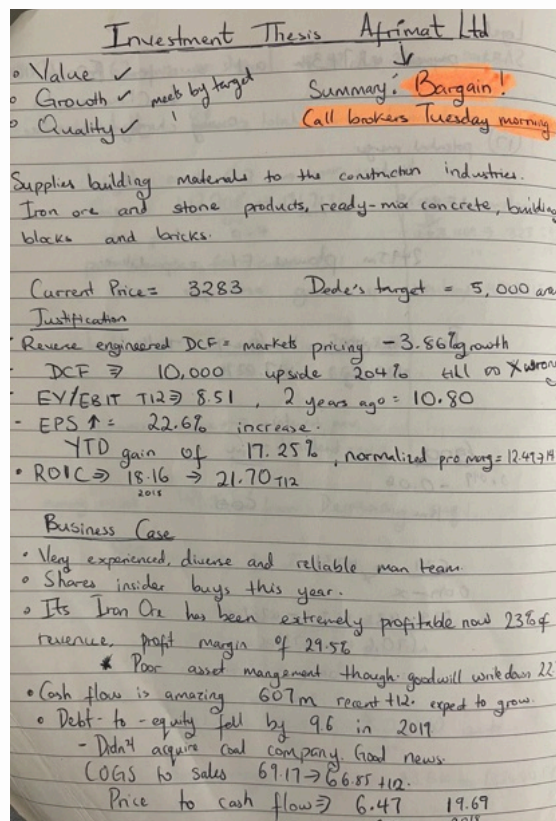 Investment Thesis Afrimat Ltd
• Value ✓
• Growth ✓ meets by target
• Quality ✓ !
Summary: Bargain!
Call brokers Tuesday morning
Supplies building materials to the construction industries.
Iron ore and stone products, ready-mix concrete, building
blocks and bricks.
Current Price = 3283 Dede's target = 5,000 area
Justification
· Reverse engineered DCF = markets pricing -3.86% growth
- DCF ⇒ 10,000 upside 204% till ∞ X wrong
- EV/EBIT T12 ⇒ 8.51, 2 years ago = 10.80
- EPS ↑ = 22.6% increase.
YTD gain of 17.25%, normalized pro marg = 12.49→14
• ROIC ⇒ 18.16 → 21.70 T12
2018
Business Case
• Very experienced, diverse and reliable man team.
• Shares insider buys this year.
• Its Iron Ore has been extremely profitable now 23% of
revenue, profit margin of 29.5%
* Poor asset mangement though. goodwill write down 22
• Cash flow is amazing 607m recent t12. expect to grow.
• Debt-to-equity fell by 9.6 in 2019
- Didn't acquire coal company. Good news.
COGS to sales 69.17→66.85 t12.
Price to cash flow ⇒ 6.47 19.69
2018